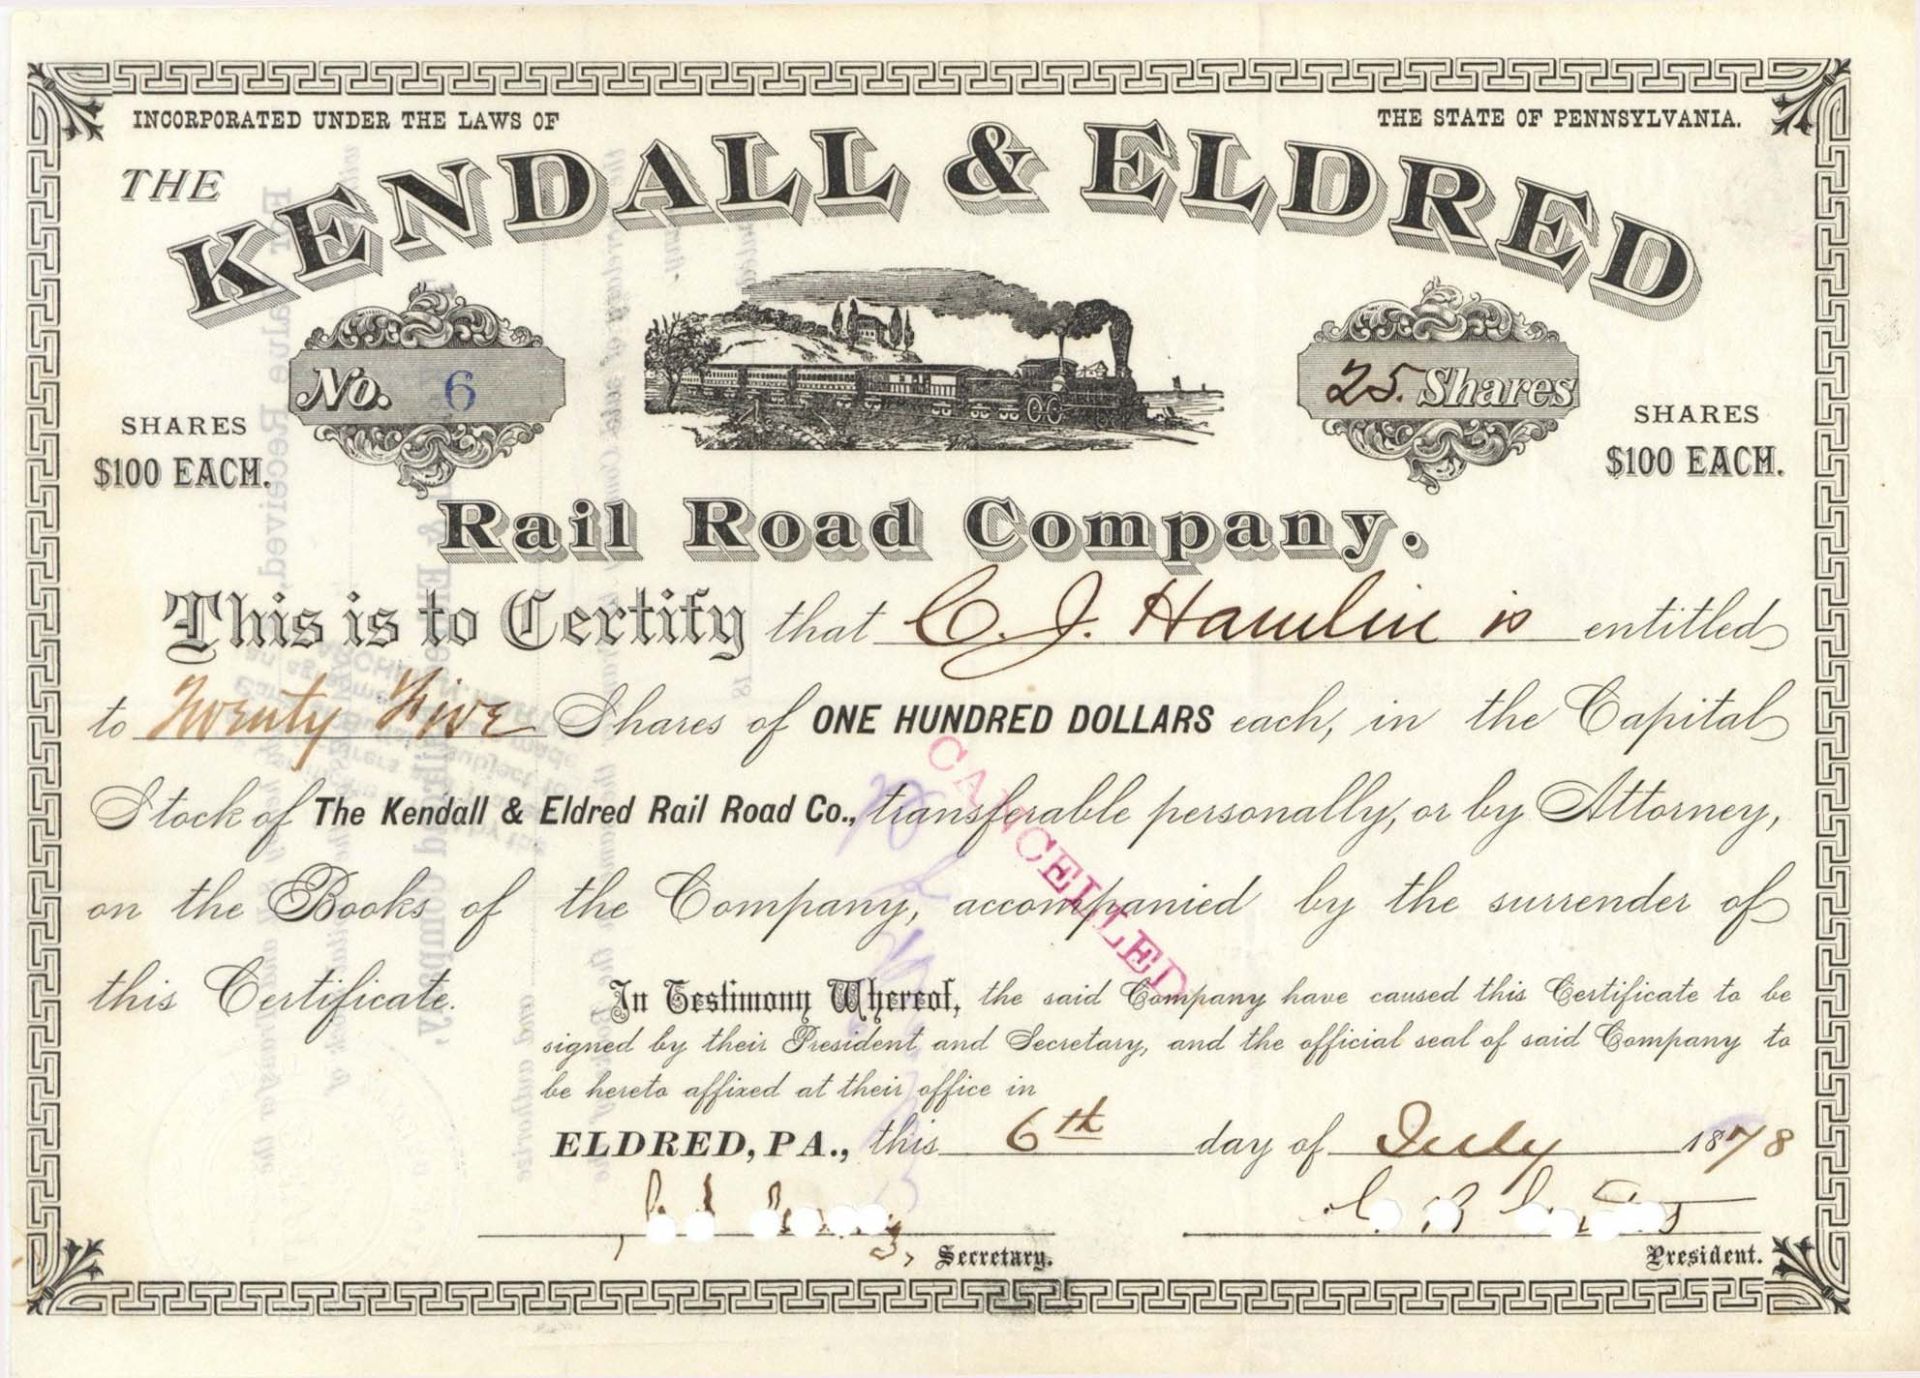 INCORPORATED UNDER THE LAWS OF THE STATE OF PENNSYLVANIA.
THE KENDALL & ELDRED
No. 6
25 Shares
SHARES $100 EACH.
SHARES $100 EACH.
Rail Road Company.
This is to Certify that C. J. Hamlin is entitled
to Twenty Five Shares of ONE HUNDRED DOLLARS each, in the Capital
Stock of The Kendall & Eldred Rail Road Co., transferable personally, or by Attorney,
on the Books of the Company, accompanied by the surrender of
this Certificate.
CANCELLED
In Testimony Whereof, the said Company have caused this Certificate to be
signed by their President and Secretary, and the official seal of said Company to
be hereto affixed at their office in
ELDRED, PA., this 6th day of July 1878
Secretary.
President.